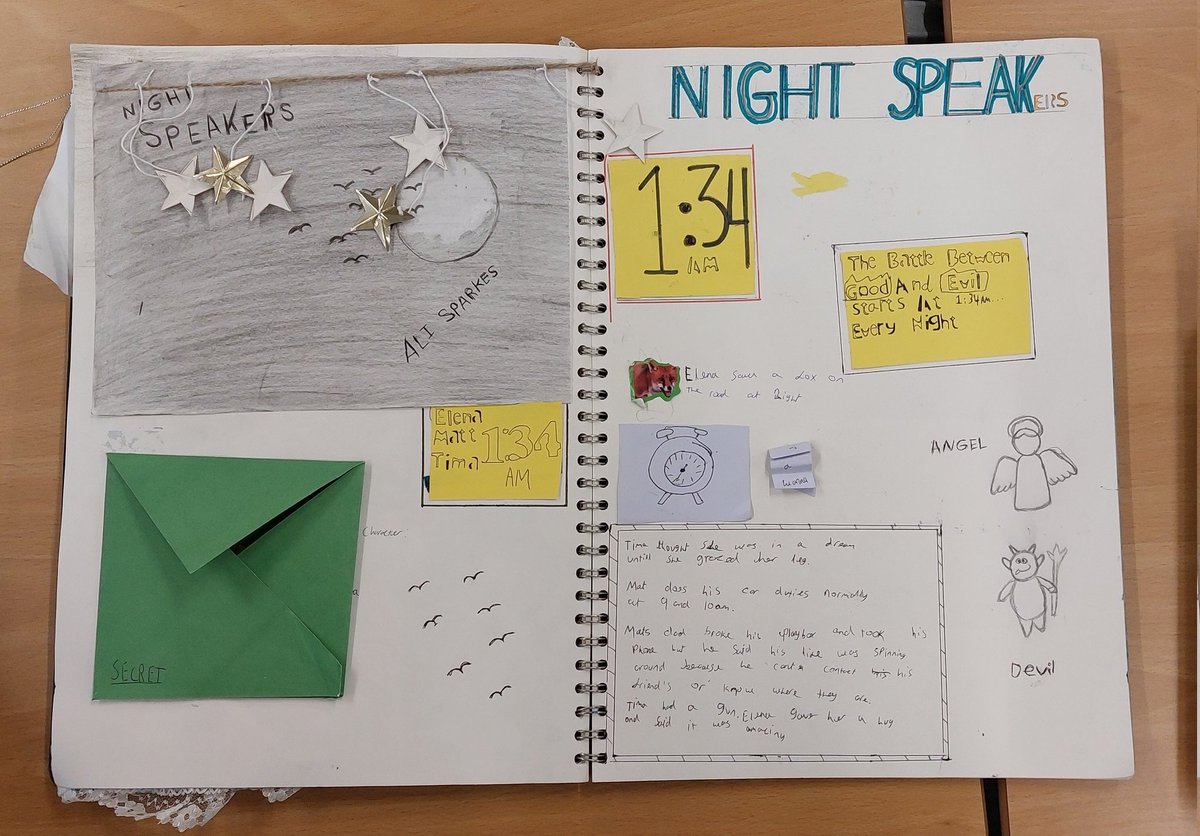 NIGHT
SPEAKERS
ALI SPARKES
Elena
Matt
Tima
1:34
AM
SECRET
Character
NIGHT SPEAKERS
1:34
AM
The Battle Between
Good And Evil
starts At 1:34AM...
Every Night
Elena saw a fox on
The road at night
a
ANGEL
Devil
Tima thought she was in a dream
untill she grazed her leg.
Mat does his car duties normally
at 9 and 10am.
Mats dad broke his and took his
Phone but he said his life was spinning
around because he cant contact his his
friend's or know where they are.
Tima had a gun. Elena gave her a hug
and said it was amazing